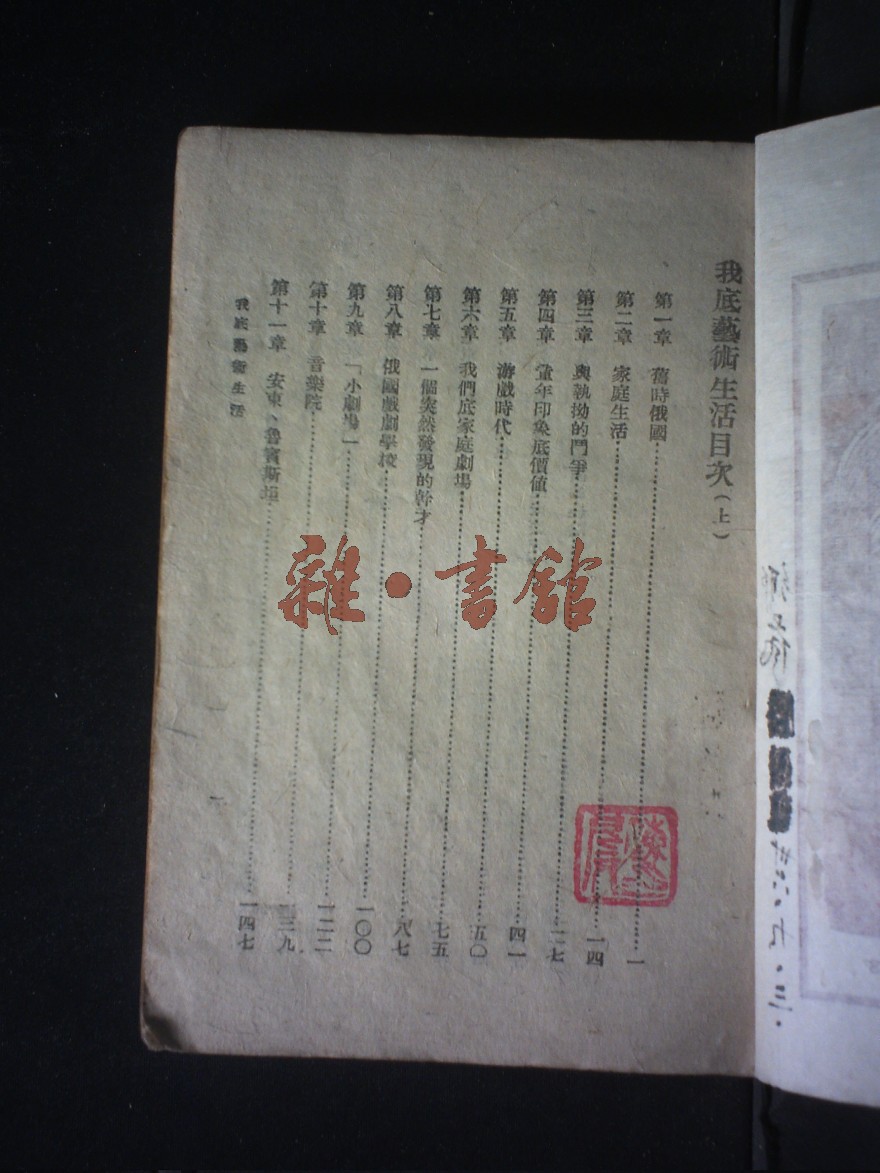 我底藝術生活目次（上）
第一章 舊時俄國……一
第二章 家庭生活……一四
第三章 與執拗的鬥爭……二七
第四章 童年印象底價值……四一
第五章 游戲時代……五〇
第六章 我們底家庭劇場……七五
第七章 一個突然發現的幹才……八七
第八章 俄國戲劇學校……一〇〇
第九章 「小劇場」……一二二
第十章 音樂院……一三九
第十一章 安東、魯賓斯坦……一四七
我底藝術生活
一
雜·書館